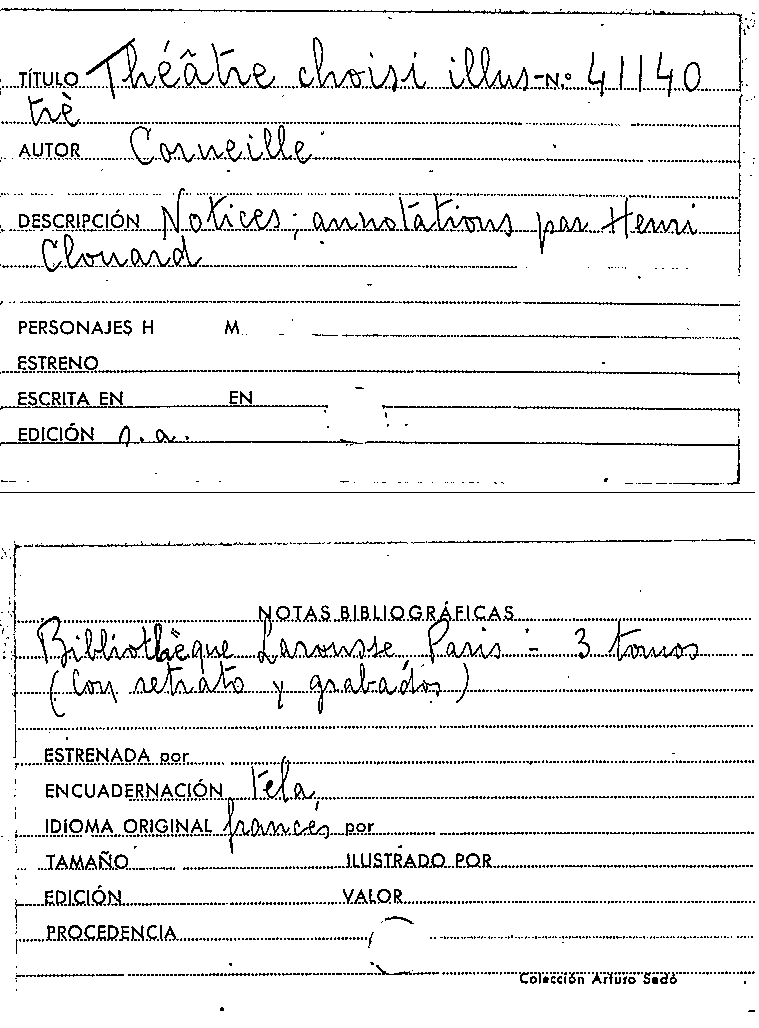 TÍTULO Théâtre choisi illus- N.º 41140
trè
AUTOR Corneille
DESCRIPCIÓN Notices; annotations par Henri
Clouard
PERSONAJES H M
ESTRENO
ESCRITA EN EN
EDICIÓN s.a.
NOTAS BIBLIOGRÁFICAS
Bibliothèque Larousse, Paris - 3 tomos
(Con retrato y grabados)
ESTRENADA por
ENCUADERNACIÓN tela
IDIOMA ORIGINAL francés por
TAMAÑO ILUSTRADO POR
EDICIÓN VALOR
PROCEDENCIA
Colección Arturo Sedó